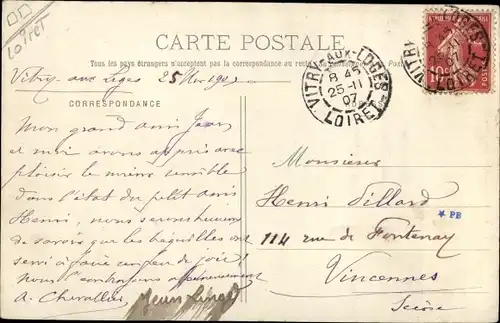 Loiret
CARTE POSTALE
Tous les pays étrangers n'acceptent pas la correspondance au recto
Vitry aux Loges 25 9bre 1907
CORRESPONDANCE
VITRY-AUX-LOGES
8 45
25-11
07
LOIRET
10c
POSTES
Mon grand ami Jean
et moi avons appris avec
plaisir le mieux sensible
dans l'état du petit ami
Henri, nous serons heureux
de savoir que les béquilles ont
servi à faire un feu de joie!
Nous l'embrassons affectueusement
A. Chevallier
Monsieur
Henri Villard
* PB
114 rue de Fontenay
Vincennes
Seine